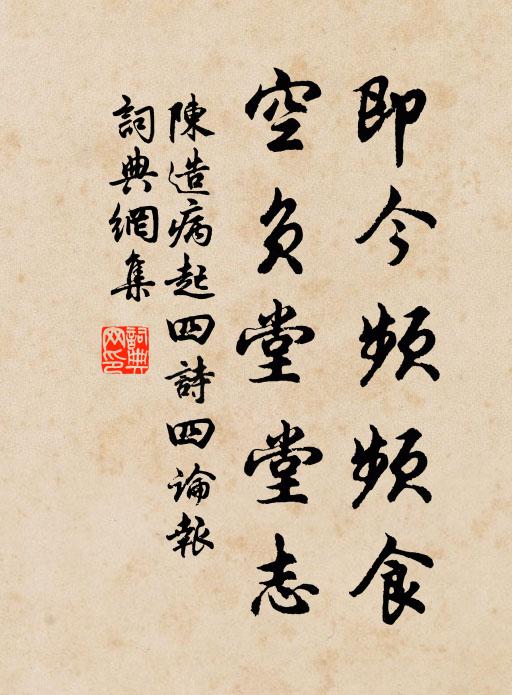 即今頻頻食
空負堂堂志
陳造病起四詩四論報
詞典網集
詞典網印